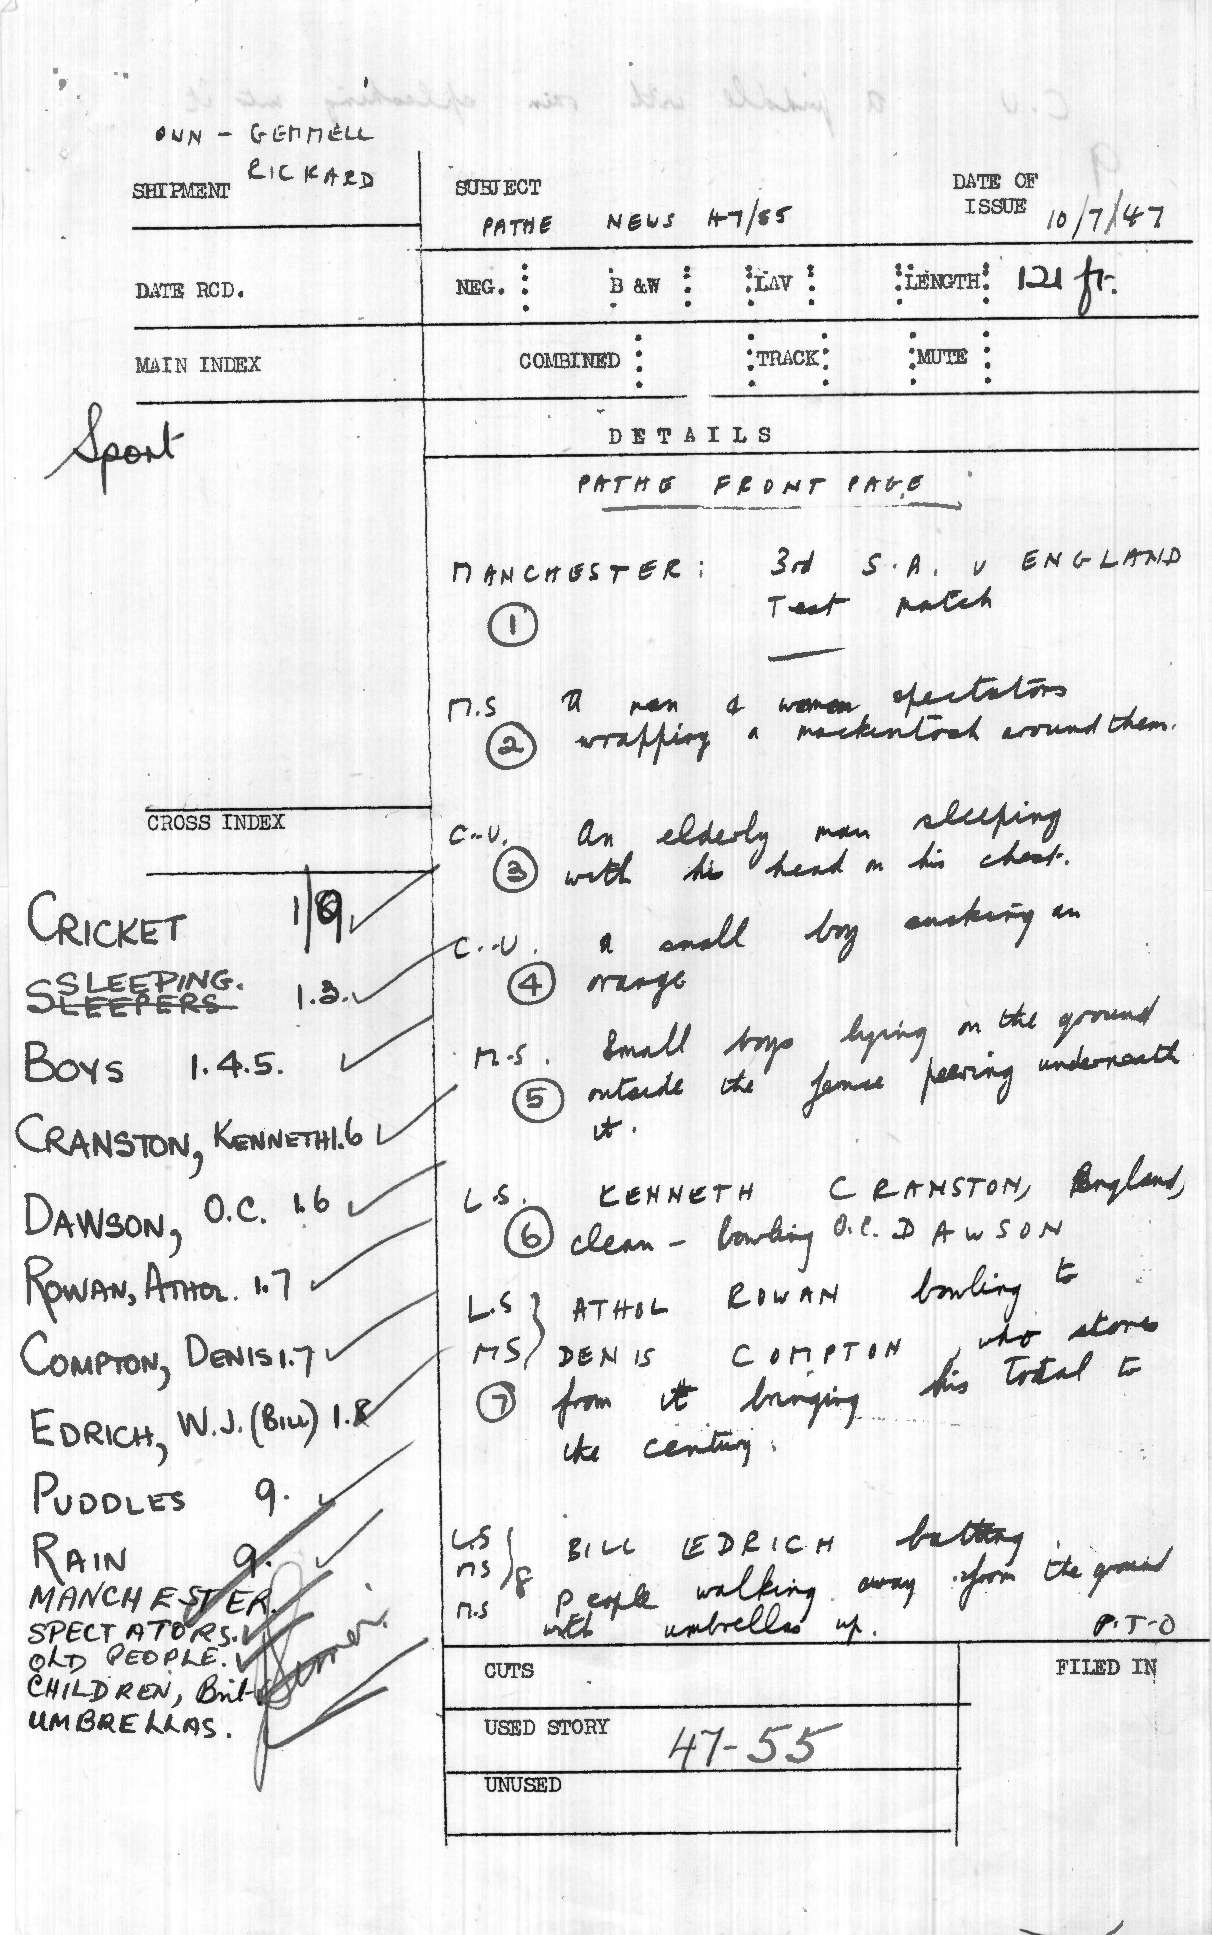 OWN - GEMMELL
RICKARD
SHIPMENT
SUBJECT
PATHE NEWS 47/55
DATE OF
ISSUE 10/7/47
DATE RCD.
NEG. B &W LAV LENGTH 121 ft.
MAIN INDEX
COMBINED TRACK MUTE
Sport
DETAILS
PATHE FRONT PAGE
MANCHESTER: 3rd S.A. v ENGLAND
Test match
1
M.S A man & woman spectators
2 wrapping a mackintosh around them.
C-U. An elderly man sleeping
3 with his head on his chest.
C.-U. A small boy sucking an
4 orange
M.S. Small boys lying on the ground
5 outside the fence peering underneath
it.
L.S. KENNETH CRANSTON, England,
6 clean - bowling O.C. DAWSON
L.S ATHOL ROWAN bowling to
MS DENIS COMPTON, who stores
7 from it bringing his total to
the century.
L.S BILL EDRICH batting.
MS 8
M.S People walking away from the ground
with umbrellas up. P.T-O
CROSS INDEX
CRICKET 1/9
SLEEPING.
SLEEPERS 1.3.
BOYS 1.4.5.
CRANSTON, KENNETH 1.6
DAWSON, O.C. 1.6
ROWAN, ATHOL. 1.7
COMPTON, DENIS 1.7
EDRICH, W.J. (BILL) 1.8
PUDDLES 9.
RAIN 9.
MANCHESTER.
SPECTATORS.
OLD PEOPLE.
CHILDREN, Brit
UMBRELLAS.
CUTS
FILED IN
USED STORY 47-55
UNUSED